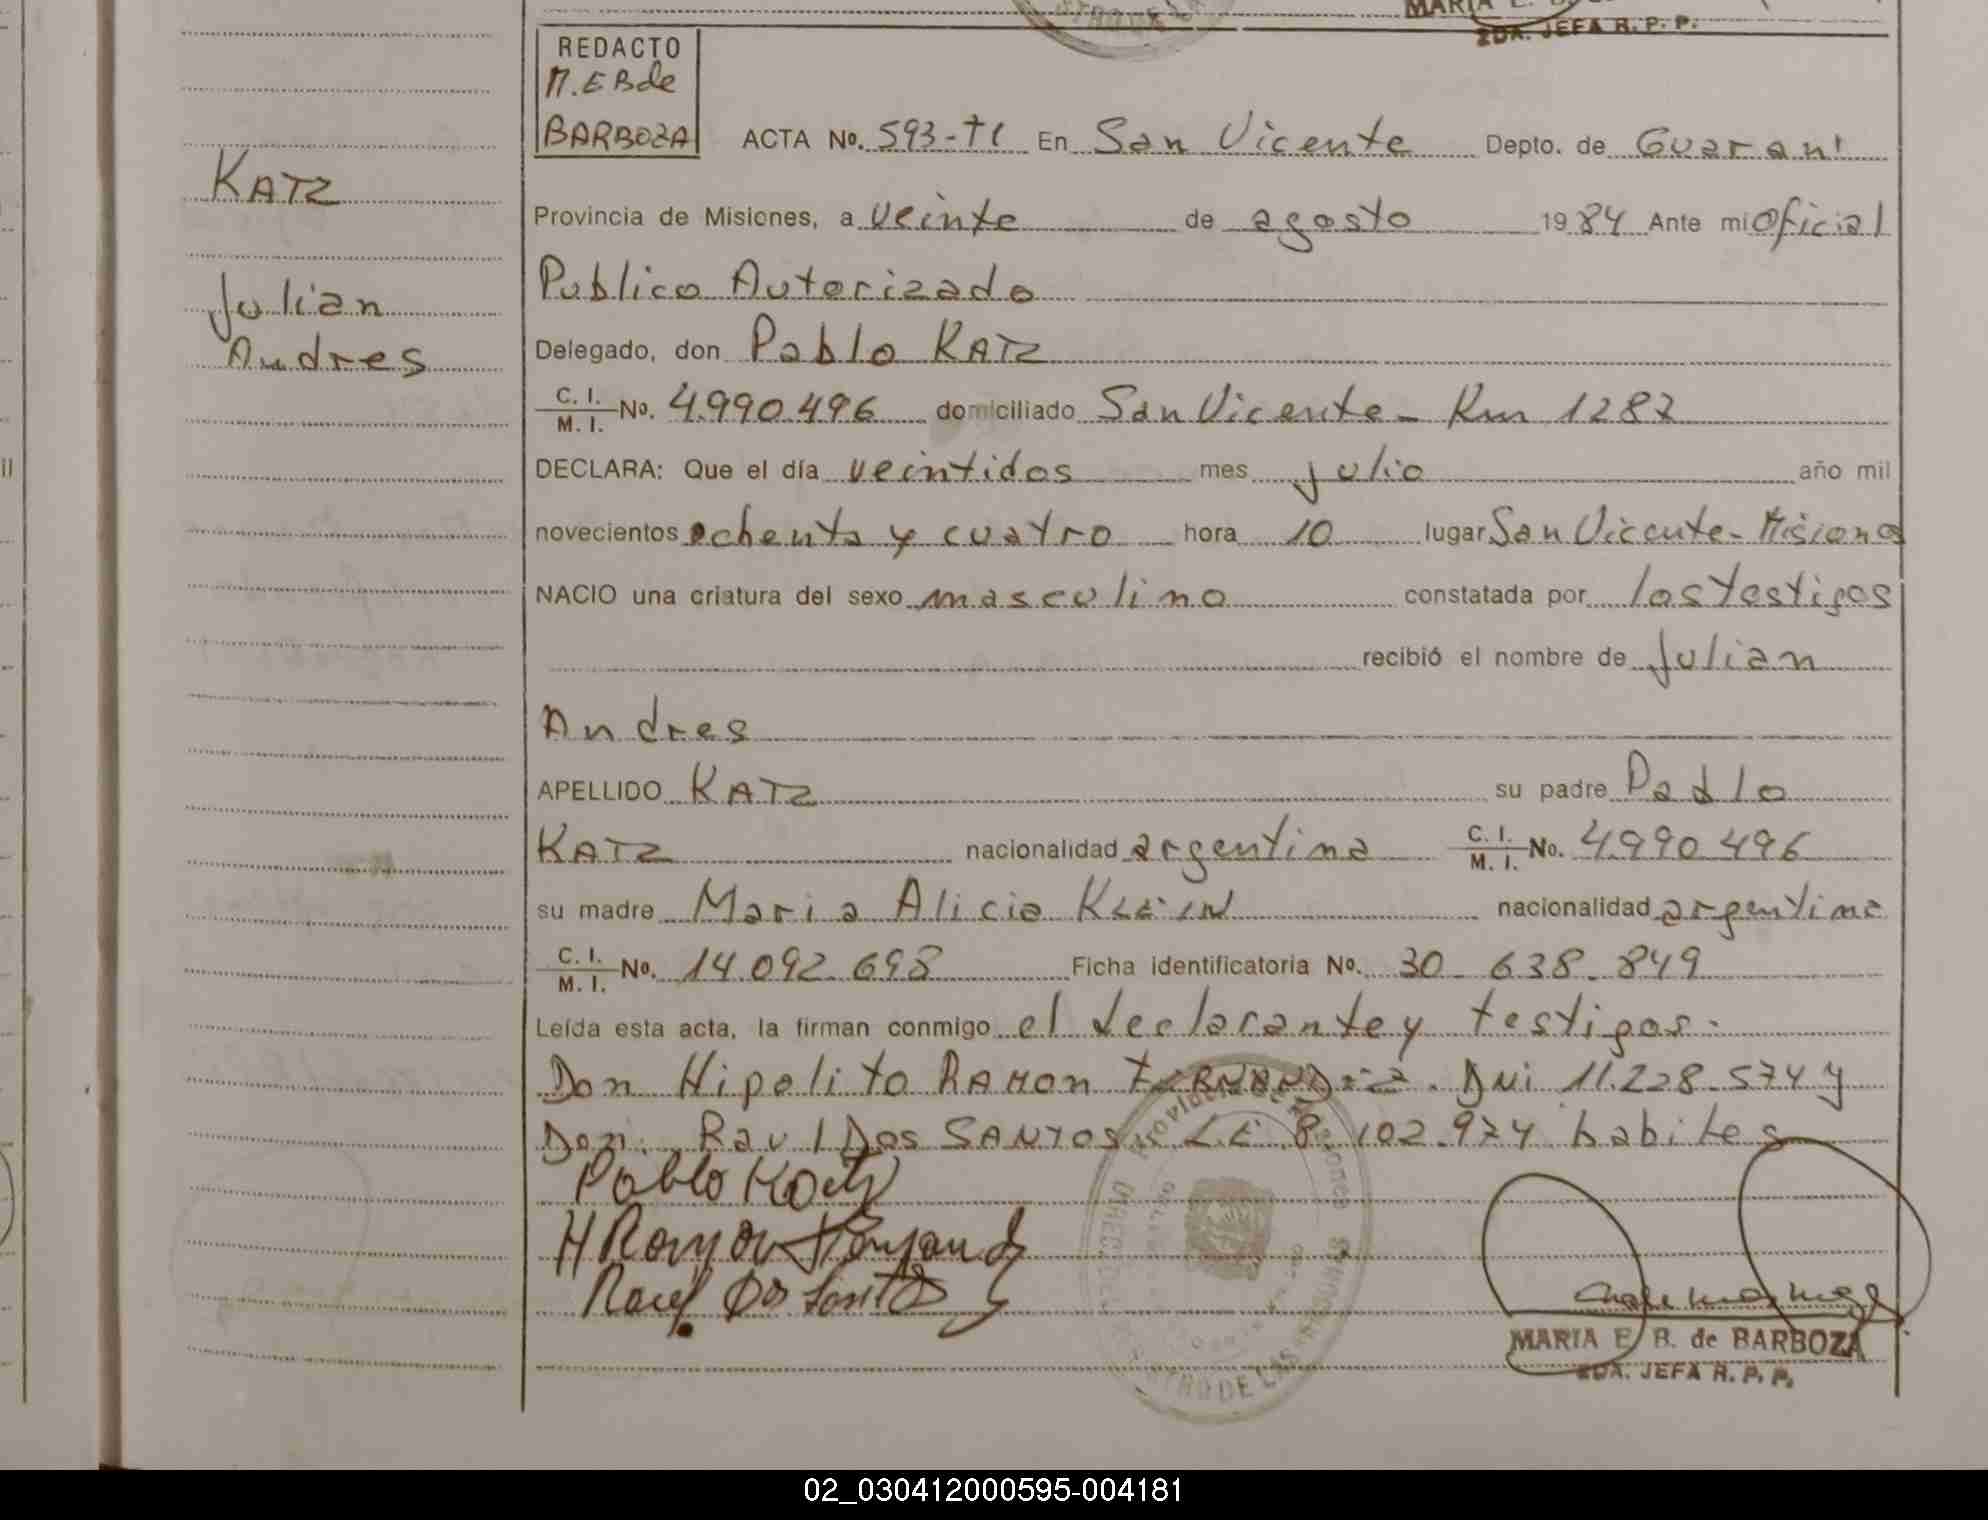 MARIA E. B.
2DA. JEFA R. P. P.
REDACTO
M. E B de
BARBOZA
KATZ
Julian
Andres
ACTA No. 593-TI En San Vicente Depto. de Guaraní
Provincia de Misiones, a veinte de agosto 1984 Ante mi Oficial
Publico Autorizado
Delegado, don Pablo KATZ
C. I. / M. I. No. 4.990.496 domiciliado San Vicente - Km 1287
DECLARA: Que el día veintidos mes julio año mil
novecientos ochenta y cuatro hora 10 lugar San Vicente - Misiones
NACIO una criatura del sexo masculino constatada por los testigos
recibió el nombre de Julian
Andres
APELLIDO KATZ su padre Pablo
KATZ nacionalidad argentina C. I. / M. I. No. 4.990.496
su madre Maria Alicia KLEIN nacionalidad argentina
C. I. / M. I. No. 14.092.698 Ficha identificatoria No. 30-638.849
Leída esta acta, la firman conmigo el declarante y testigos.
Don Hipolito RAMON FERNANDEZ. DNi 11.228.574 y
Don: Raul Dos SANTOS LE 8.102.974 habiles
Pablo Katz
H Ramon Fernandez
Raul Dos Santos
MARIA E. B. de BARBOZA
2DA. JEFA R. P. P.
02_030412000595-004181